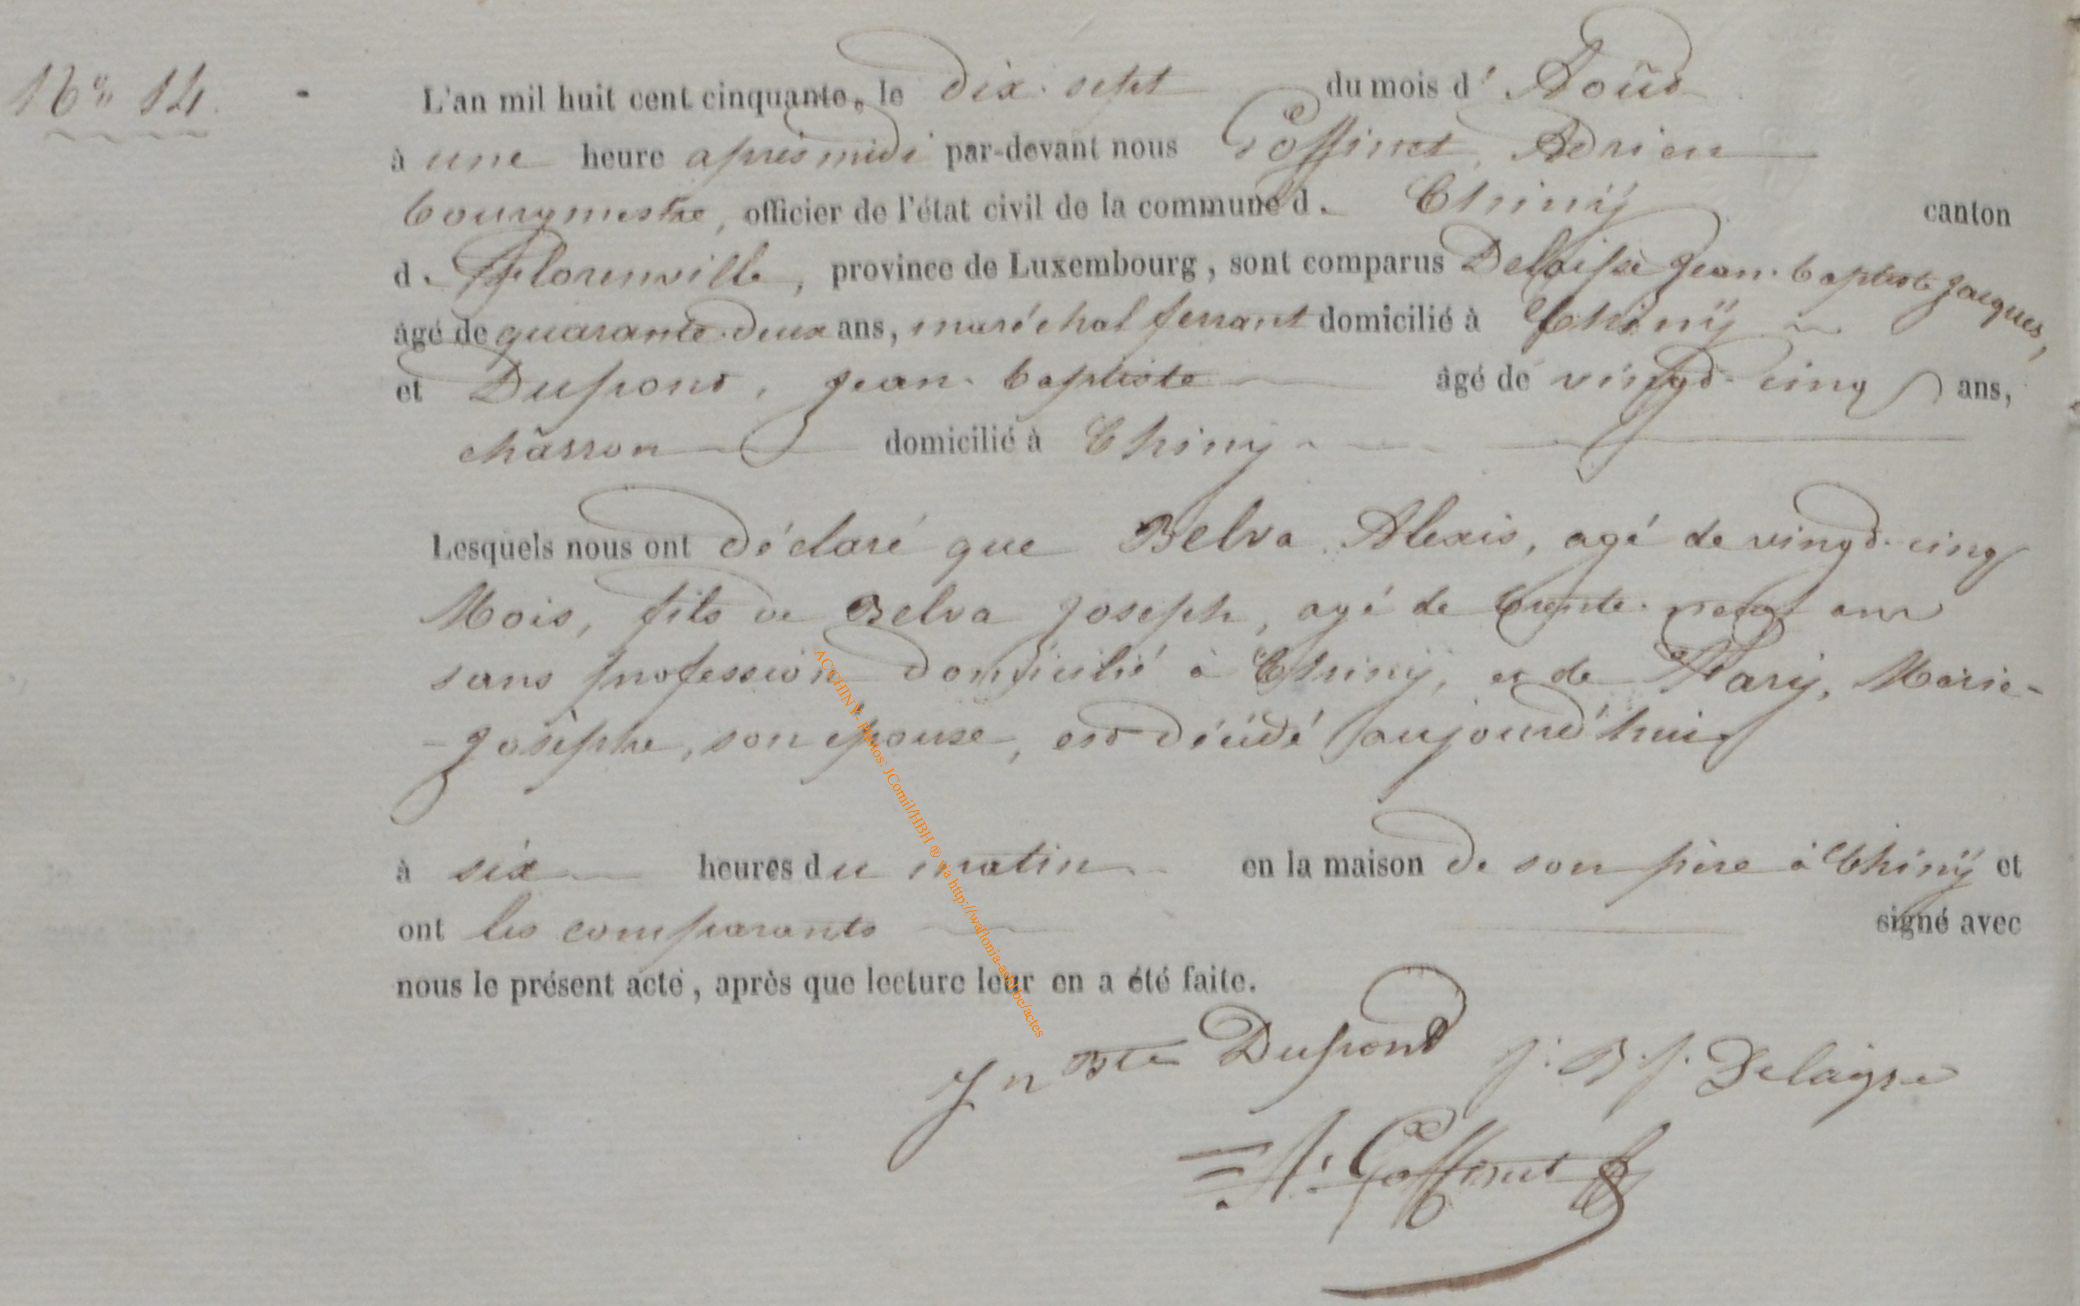 N° 14.
L'an mil huit cent cinquante, le dix-sept du mois d'Août
à une heure après midi par-devant nous Goffinet, Adrien
bourgmestre, officier de l'état civil de la commune d. Chinÿ canton
d. Florenville, province de Luxembourg, sont comparus Delaisse Jean-baptiste Jacques,
âgé de quarante-deux ans, maréchal ferrant domicilié à Chinÿ
et Dupont, Jean-baptiste âgé de vingt-cinq ans,
domicilié à Chiny
Lesquels nous ont déclaré que Belva Alexis, agé de vingt-cinq
Mois, fils de Belva Joseph, agé de trente-neuf ans
sans profession domicilié à Chinÿ, et de Marie-
-Josèphe, son épouse, est décédé aujourd'hui
à six heures du matin en la maison de son père à Chinÿ et
ont les comparants signé avec
nous le présent acte, après que lecture leur en a été faite.
Jn Bte Dupont J. B. J. Delaisse
A. Goffinet
ACCHINY- Photos JCornil/HBH ® via http://wallonia-asbl.be/actes